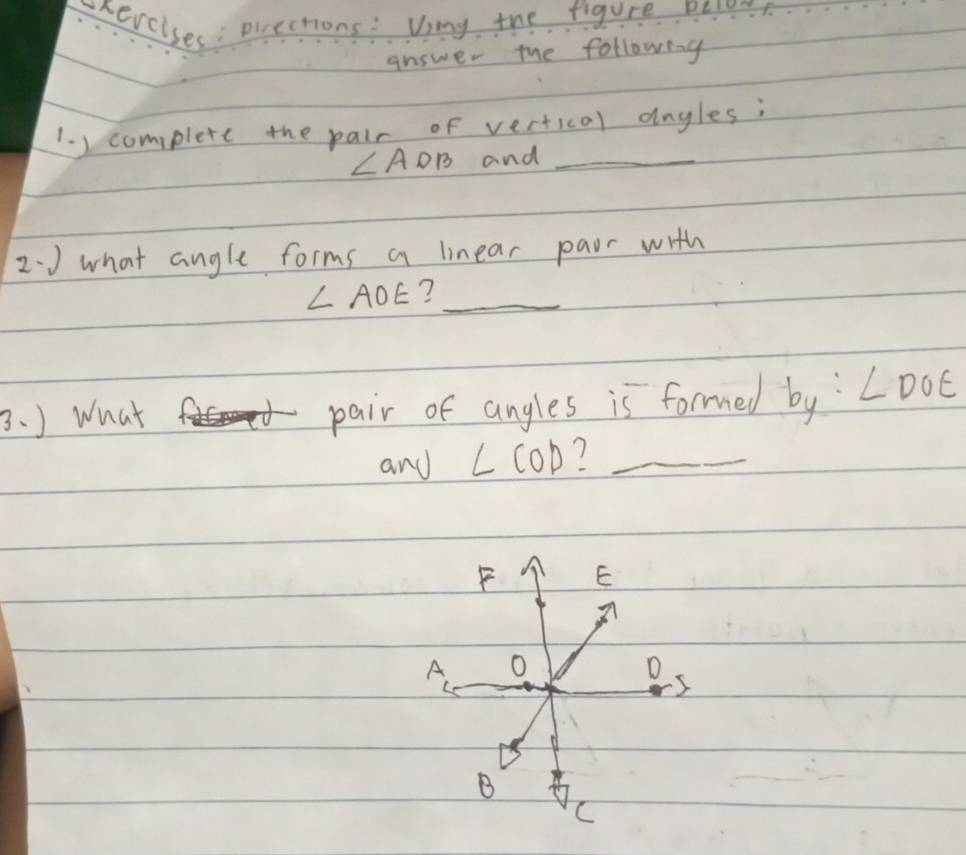 Exercises: Directions: Using the figure below,
answer the following
1.) complete the pair of vertical angles:
∠AOB and ______
2.) what angle forms a linear pair with
∠AOE? ______
3.) What pair of angles is formed by: ∠DOE
and ∠COD? ______
F E
A O D
B
C